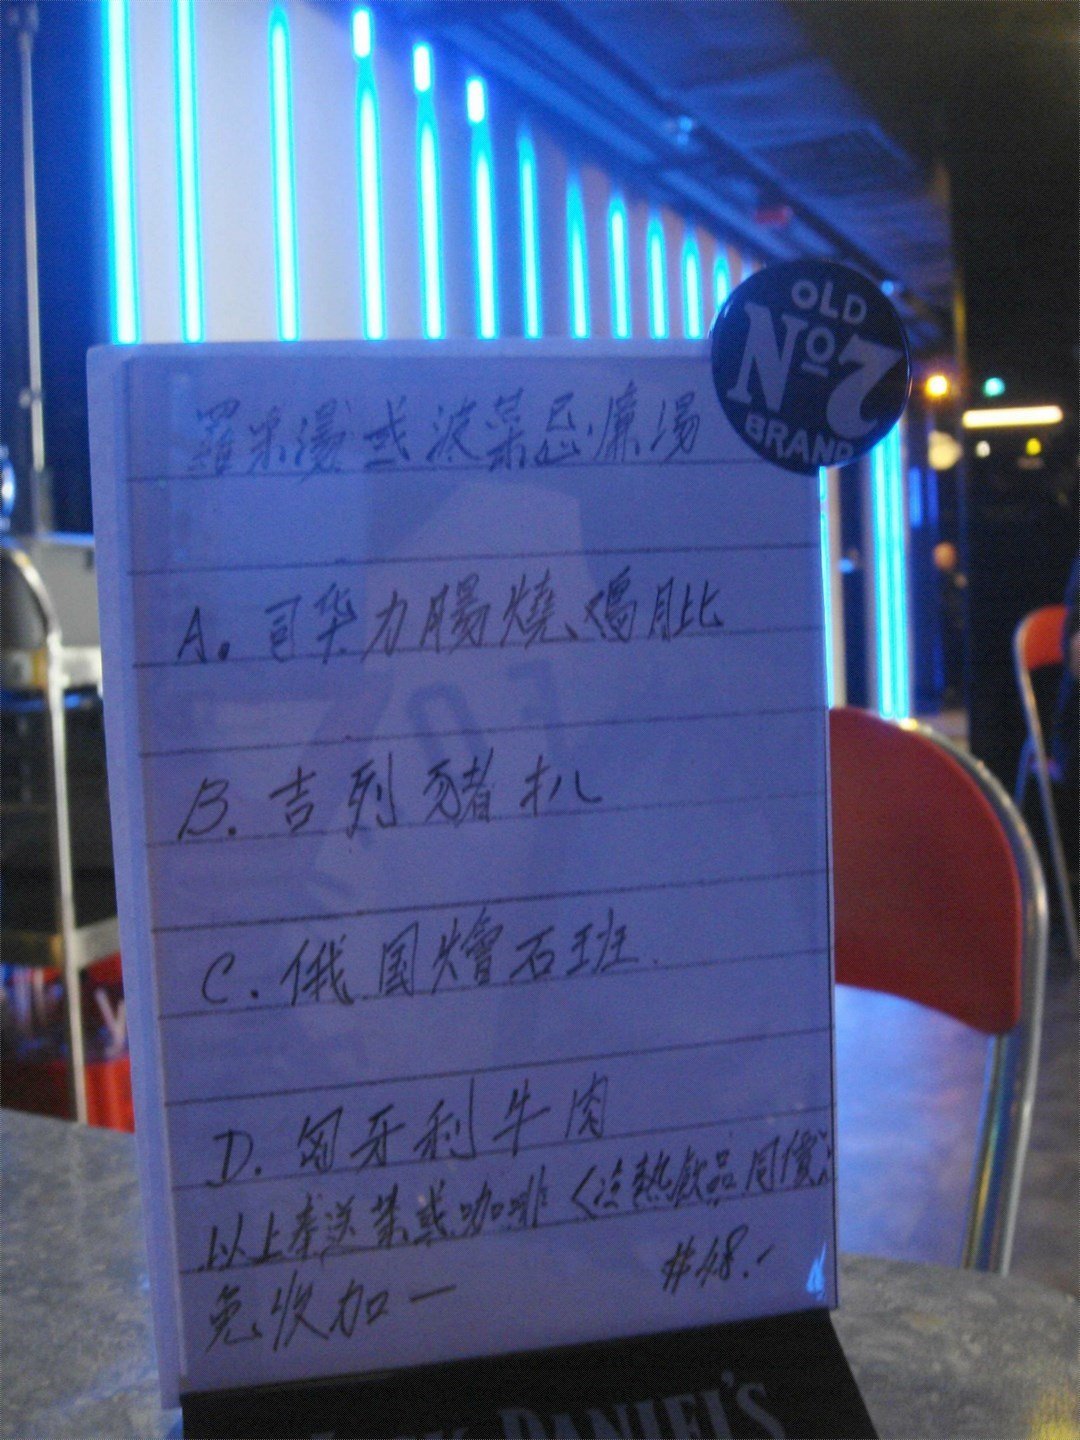 OLD
No 7
BRAND
羅宋湯或波菜忌廉湯
A. 司华力腸燒雞髀
B. 吉列豬扒
C. 俄国燴石班
D. 匈牙利牛肉
以上奉送茶或咖啡〈冷熱飲品同價〉
免收加一
DANIEL'S